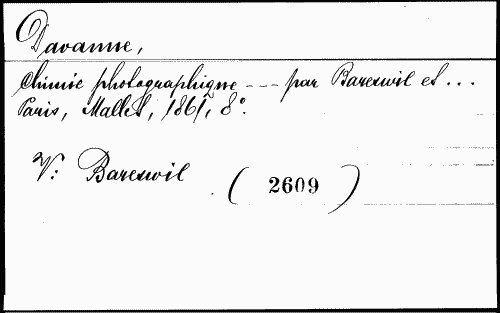 Davanne,
Chimie photographique --- par Bareswil et ...
Paris, Mallet, 1861, 8°.
V: Bareswil
( 2609 )